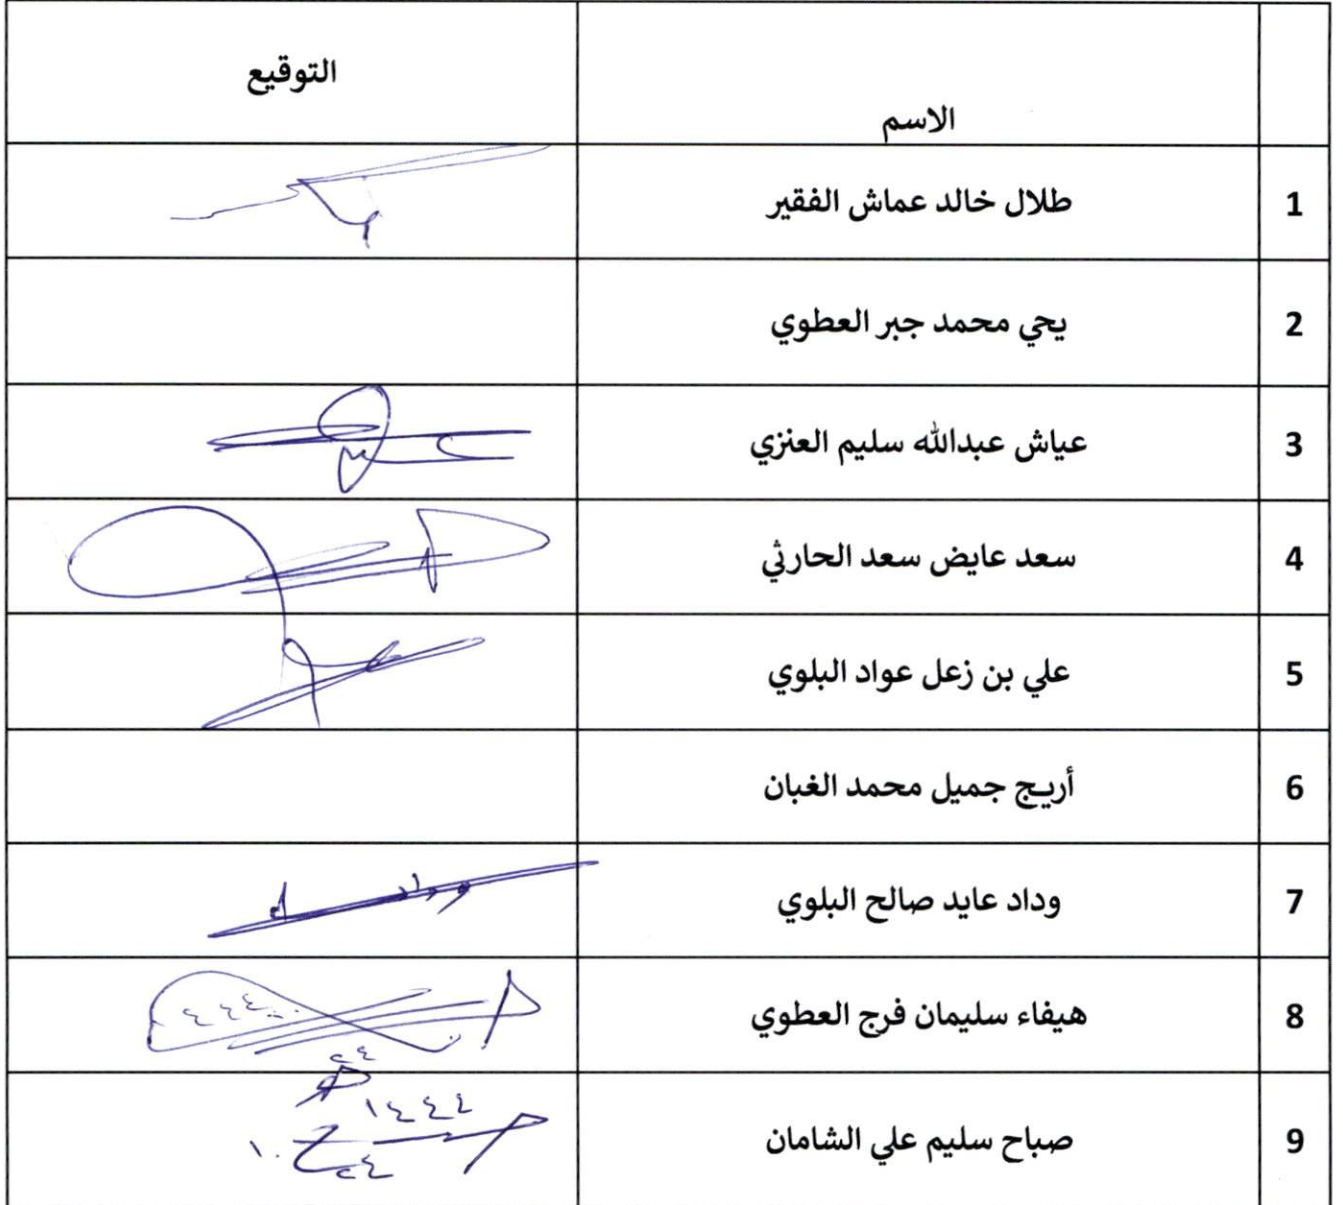 الاسم
التوقيع
1
طلال خالد عماش الفقير
2
يحي محمد جبر العطوي
3
عياش عبدالله سليم العنزي
4
سعد عايض سعد الحارثي
5
علي بن زعل عواد البلوي
6
أريج جميل محمد الغبان
7
وداد عايد صالح البلوي
8
هيفاء سليمان فرج العطوي
9
صباح سليم علي الشامان
١٤٤٤